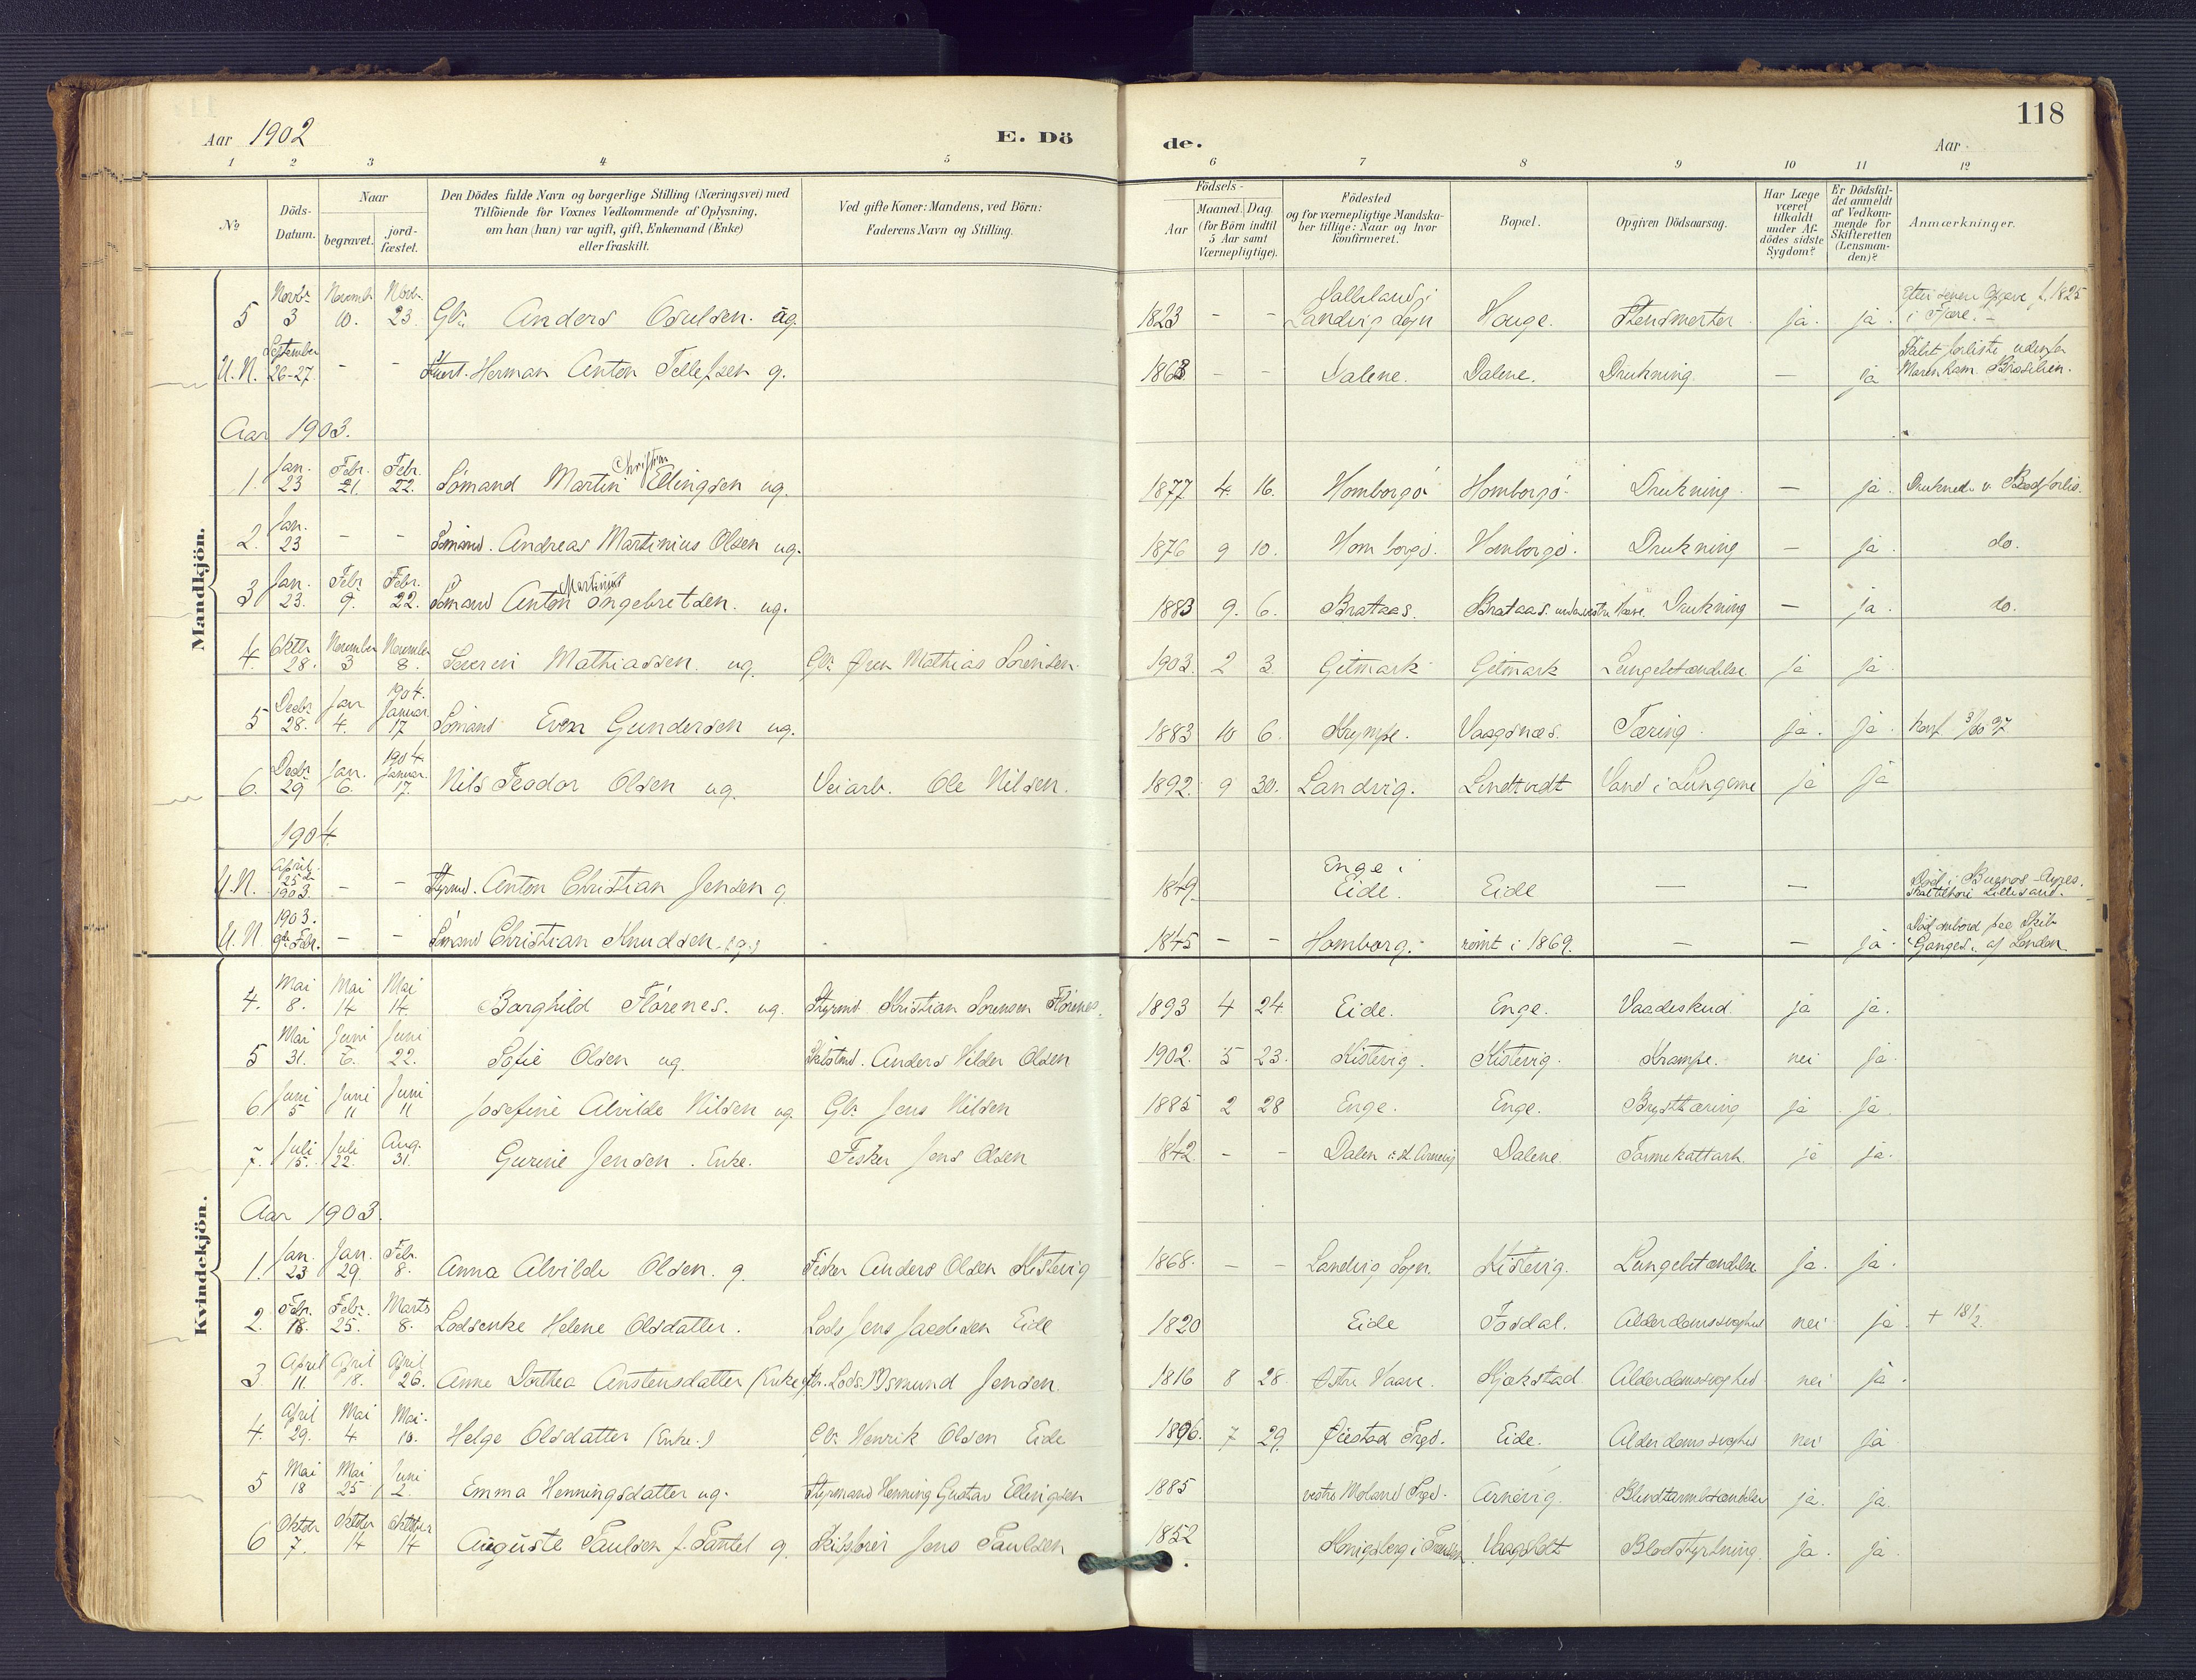 118
Aar 1902 E. Dö de. Aar
1 2 3 4 5 6 7 8 9 10 11 12
No
Döds-Datum.
Naar
begravet.
jord-fæstet.
Den Dödes fulde Navn og borgerlige Stilling (Næringsvei) med
Tilföiende for Voxnes Vedkommende af Oplysning,
om han (hun) var ugift, gift, Enkemand (Enke)
eller fraskilt.
Ved gifte Koner: Mandens, ved Börn:
Faderens Navn og Stilling.
Födsels-
Aar
Maaned. Dag.
(for Börn indtil
5 Aar samt
Værnepligtige).
Födested
og for værnepligtige Mandska-
ber tillige: Naar og hvor
konfirmeret.
Bopæl.
Opgiven Dödsaarsag.
Har Læge
været
tilkaldt
under Af-
dödes sidste
Sygdom?
Er Dödsfal-
det anmeldt
af Vedkom-
mende for
Skifteretten
(Lensman-
den)?
Anmærkninger.
Mandkjön.
5 Novbr 3 Novemb. 10. Novb. 23 Gbr. Anders Osulsen. ug. 1823 - - Landvig Sogn Hauge. Stensmerter ja. ja. i Fjære.
U.N. September 26-27. - - Herman Anton Tellefsen g. 1868 - - Dalene. Dalene. Drukning. — ja Brasilien.
Aar 1903.
1. Jan. 23 Febr. 21. Febr. 22. Sömand Martin Christian Ellingsen ug. 1877 4. 16. Homborgö Homborgö Drukning. — ja. Druknede v. Baadforlis.
2. Jan. 23 - - Sömand. Andreas Martinius Olsen ug. 1876 9 10. Homborgö. Homborgö. Drukning — ja. do.
3 Jan. 23. Febr 9. Febr. 22. Sömand Anton Martinius Ingebretsen. ug. 1883 9. 6. Brataas. Brataas. Drukning — ja. do.
4. Oktbr 28. November 3 November 8. Severin Mathiassen. ug. Gbr. Mathias Sörensen. 1903. 2 3 Gitmark Gitmark Lungebetændelse ja ja
5 Decbr 28. Jan 4. 1904. Januar 17 Sömand Even Gundersen ug. 1883 10 6. Krympe. Vaagsnæs. Tæring. ja. ja.
6. Decbr 29 Jan. 6. 1904. Januar. 17. Nils Teodor Olsen ug. Veiarb. Ole Nilsen. 1892. 9 30. Landvig. Lindtvedt Vand i Lungerne ja ja
1904.
U.N. April 25de 1903. - - Styrmd. Anton Christian Jensen g. 1849. Enge i Eide. Eide — — Död i Buenos-Ayres.
U.N. 1903. 9de Febr. - - Sömand Christian Knudsen. 1845 - - Homborg. römt i 1869. — — ja. Död ombord paa Skib "Ganges" af London.
Kvindekjön.
4. Mai 8. Mai 14 Mai 14. Borghild Flörenes. ug. Styrmd. Kristian Sörensen Flörenes. 1893 4 24 Eide. Enge. Vaadeskud. ja ja.
5 Mai 31. Juni 6. Juni 22. Sofie Olsen ug. Anders Olsen 1902. 5 23. Kistevig. Kistevig. Krampe. nei ja.
6. Juni 5 Juni 11 Juni 11 Josefine Alvilde Nilsen ug Gbr Jens Nilsen 1885 2 28 Enge. Enge. Brysttæring ja ja.
7. Juli 15. Juli 22. Aug. 31. Gurine Jensen. Enke. Fisker Jens Olsen 1842. - - Dalen Dalene. Tarmekattarh. ja ja.
Aar 1903.
1. Jan. 23 Jan. 29. Febr. 8. Anna Alvilde Olsen. g. Fisker Anders Olsen Kistevig 1868. - - Landvig Sogn. Kistevig. Lungebetændelse ja. ja.
2. Febr. 18. Febr. 25. Marts 8. Lodsenke Helene Olsdatter. Lods Jens Eide 1820 Eide Fosdal. Alderdomssvaghed nei ja + 18/2.
3. April 11. April 18. April 26. Anne Dorthea Anstensdatter (Enke) Lods Asmund Jensen. 1816 8 28 Østre Vaare. Kjøkstad Alderdomssvaghed nei ja.
4. April 29. Mai 4. Mai. 10. Helge Olsdatter (Enke.) Gbr. Henrik Olsen Eide 7 29. Øiestad Prgd. Eide. Alderdomssvaghed nei ja
5 Mai 18 Mai 25 Juni 2. Emma Henningsdatter ug. Styrmand Henning Gustav Ellingsen 1885 vestre Moland Prgd. Arnevig. Blindtarmbetændelse ja. ja.
6 Oktbr 7. Oktbr 14 Oktober 14 Auguste Paulsen f. Pantel g. Skibsförer Jens Paulsen 1852 Königsberg i Vaagsholt Blodstyrtning. ja. ja.